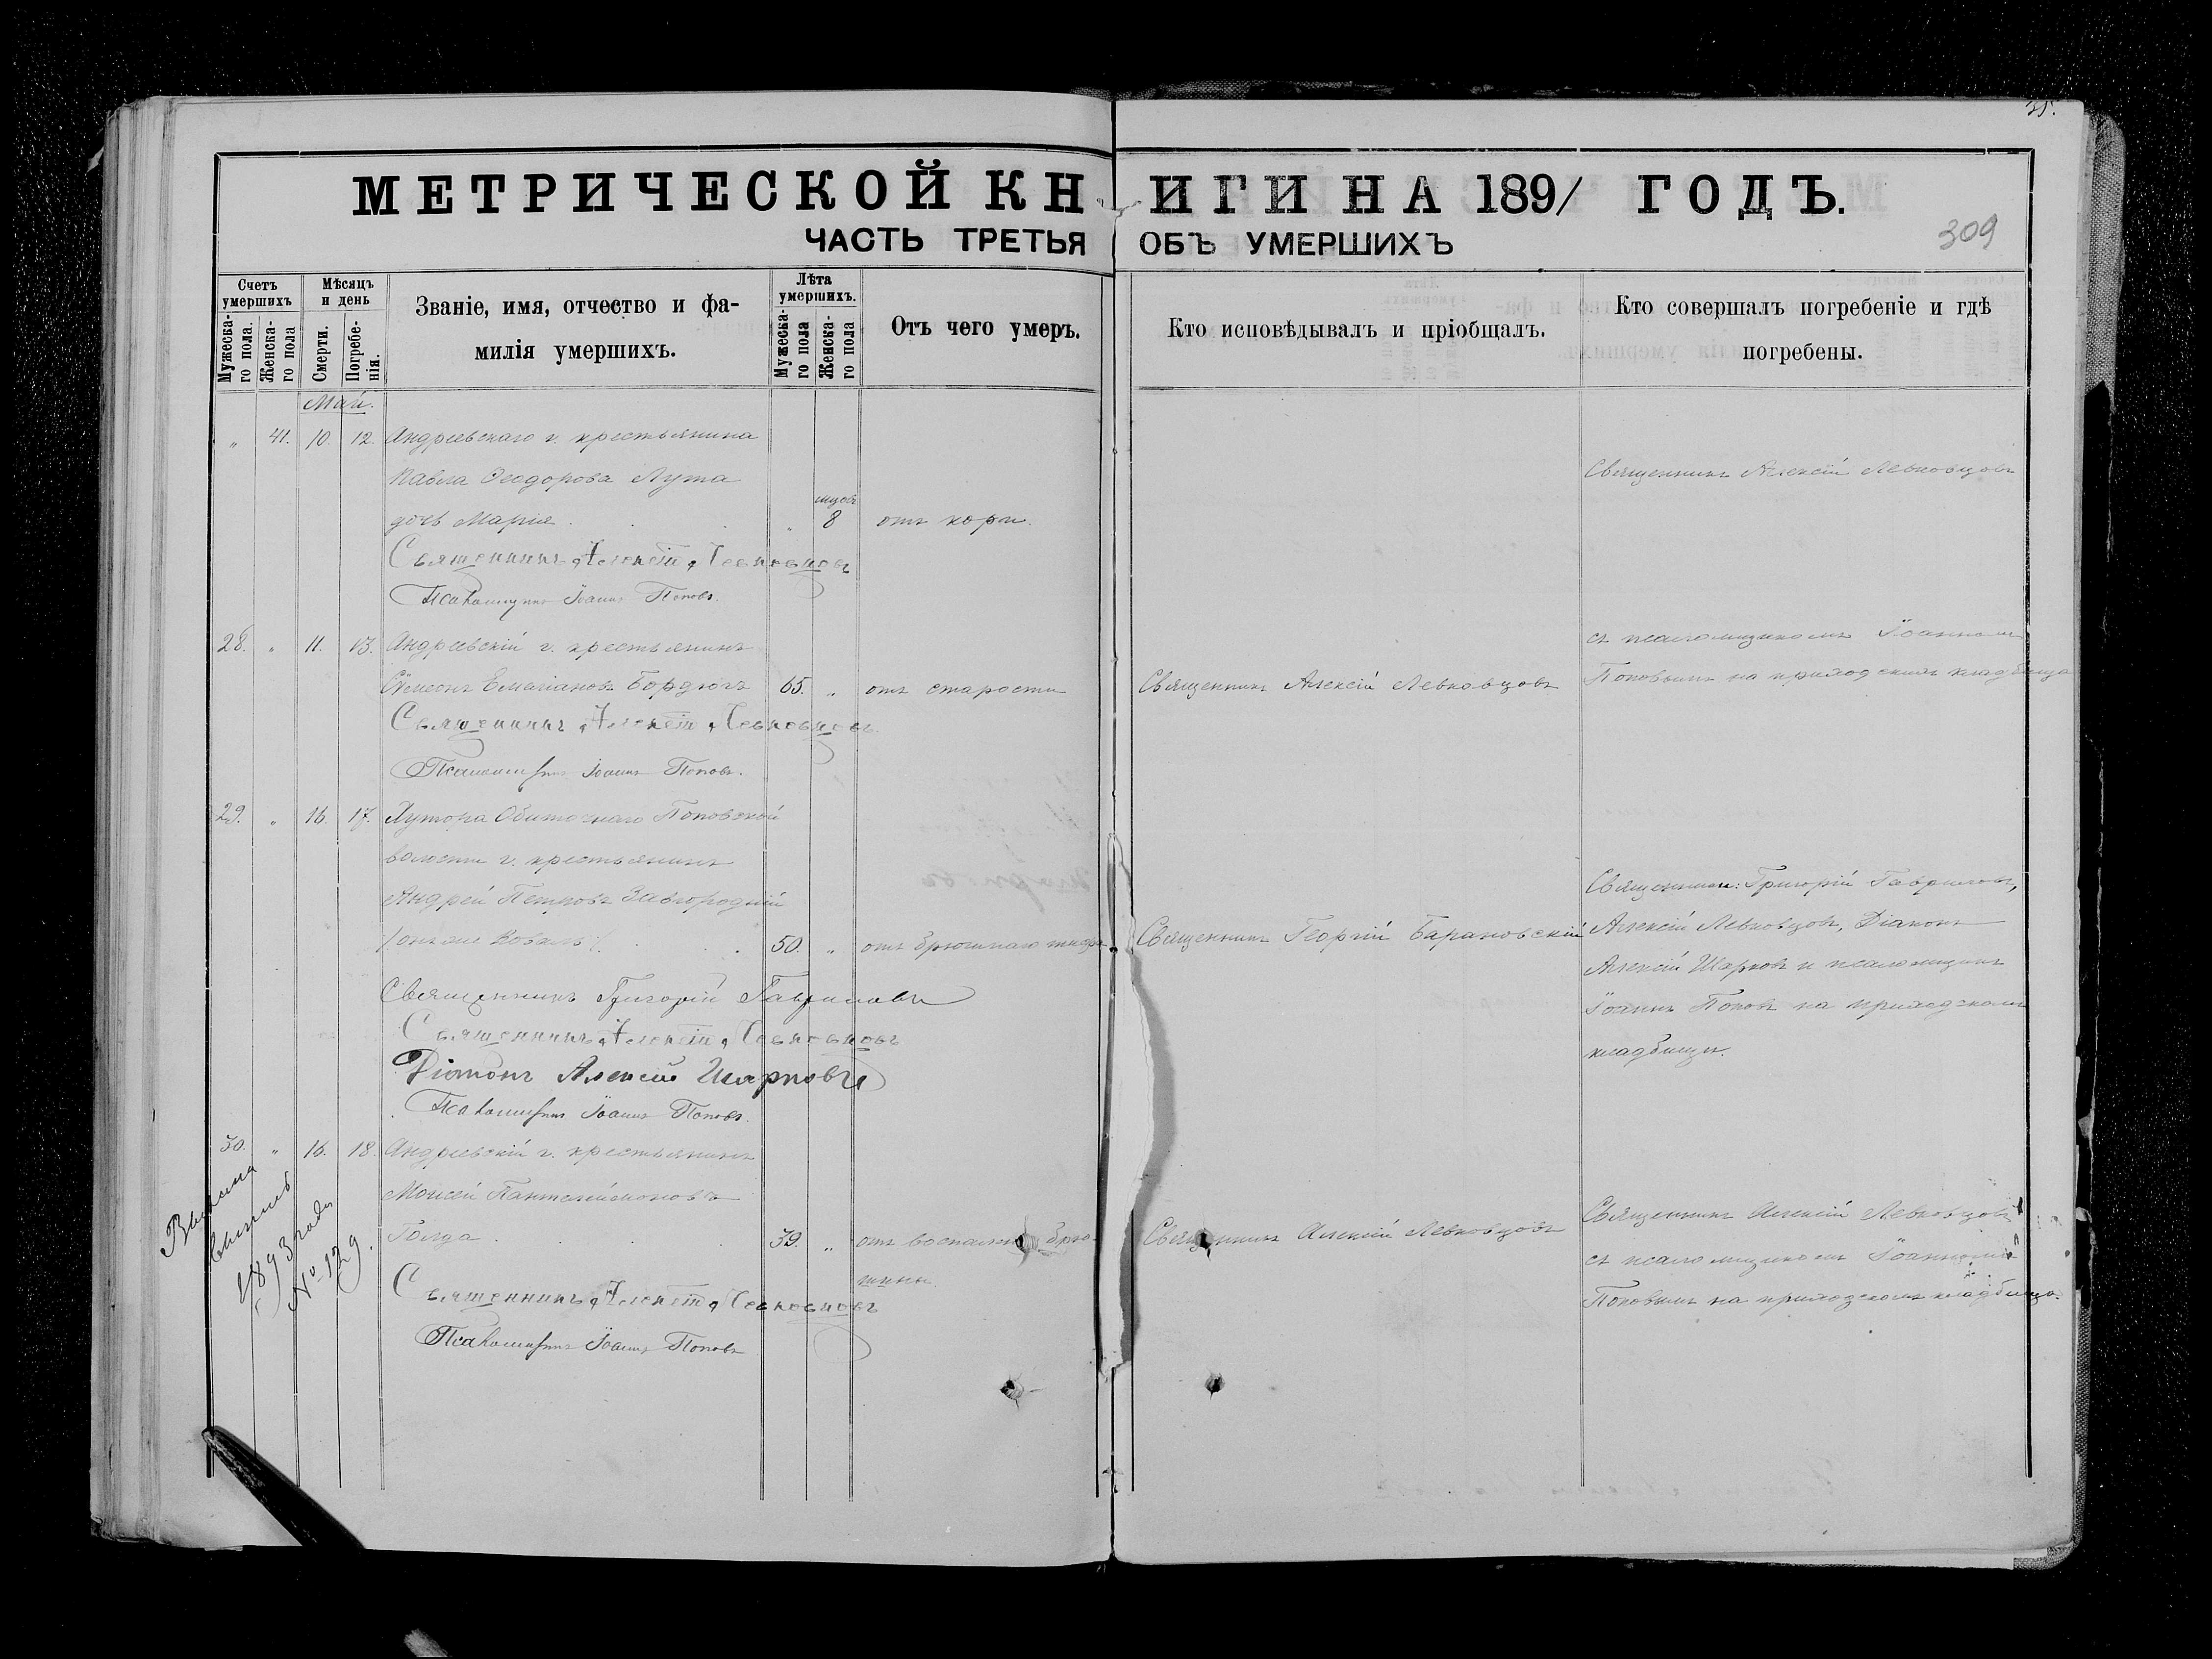 35.
МЕТРИЧЕСКОЙ КНИГИ НА 1891 ГОДЪ.
309
ЧАСТЬ ТРЕТЬЯ ОБЪ УМЕРШИХЪ
Счетъ умершихъ
Мужеска-го пола.
Женска-го пола
Мѣсяцъ и день
Смерти.
Погребе-нія.
Званіе, имя, отчество и фа-
милія умершихъ.
Лѣта умершихъ.
Мужеска-го пола
Женска-го пола
Отъ чего умеръ.
Кто исповѣдывалъ и пріобщалъ.
Кто совершалъ погребеніе и гдѣ
погребены.
Май.
„ 41. 10. 12. Андреевскаго г. крестьянина
Павла Ѳеодорова Лута
дочь Марія . . . „ мцовъ 8 отъ кори.
Священникъ Алексій Левковцовъ
Священникъ Алексій Левковцовъ
Псаломщикъ Іоаннъ Поповъ.
съ псаломщикомъ Іоанномъ
Поповымъ на приходскомъ кладбищѣ
28. „ 11. 13. Андреевскій г. крестьянинъ
Сѵмеонъ Емеліановъ Бордюгъ 65. „ отъ старости
Священникъ Алексій Левковцовъ
Священникъ Алексій Левковцовъ.
Псаломщикъ Іоаннъ Поповъ.
29. „ 16. 17. Хутора Обиточнаго Поповской
волости г. крестьянинъ
Андрей Петровъ Завгородній
/онъ же Коваль/. . . 50. „ отъ брюшнаго тифа
Священникъ Георгій Барановскій
Священники: Григорій Гавриловъ,
Алексій Левковцовъ, Діаконъ
Алексій Шарковъ и псаломщикъ
Іоаннъ Поповъ на приходскомъ
кладбищѣ.
Священникъ Григорій Гавриловъ
Священникъ Алексій Левковцовъ
Діаконъ Алексій Шарковъ
Псаломщикъ Іоаннъ Поповъ.
30. „ 16. 18. Андреевскій г. крестьянинъ
Моисей Пантелеймоновъ
Голда . . . 39. „ отъ воспаленія брю-
шины.
Священникъ Алексій Левковцовъ
Священникъ Алексій Левковцовъ
съ псаломщикомъ Іоанномъ
Поповымъ на приходскомъ кладбищѣ.
Священникъ Алексій Левковцовъ
Псаломщикъ Іоаннъ Поповъ
1893 года
№ 129.